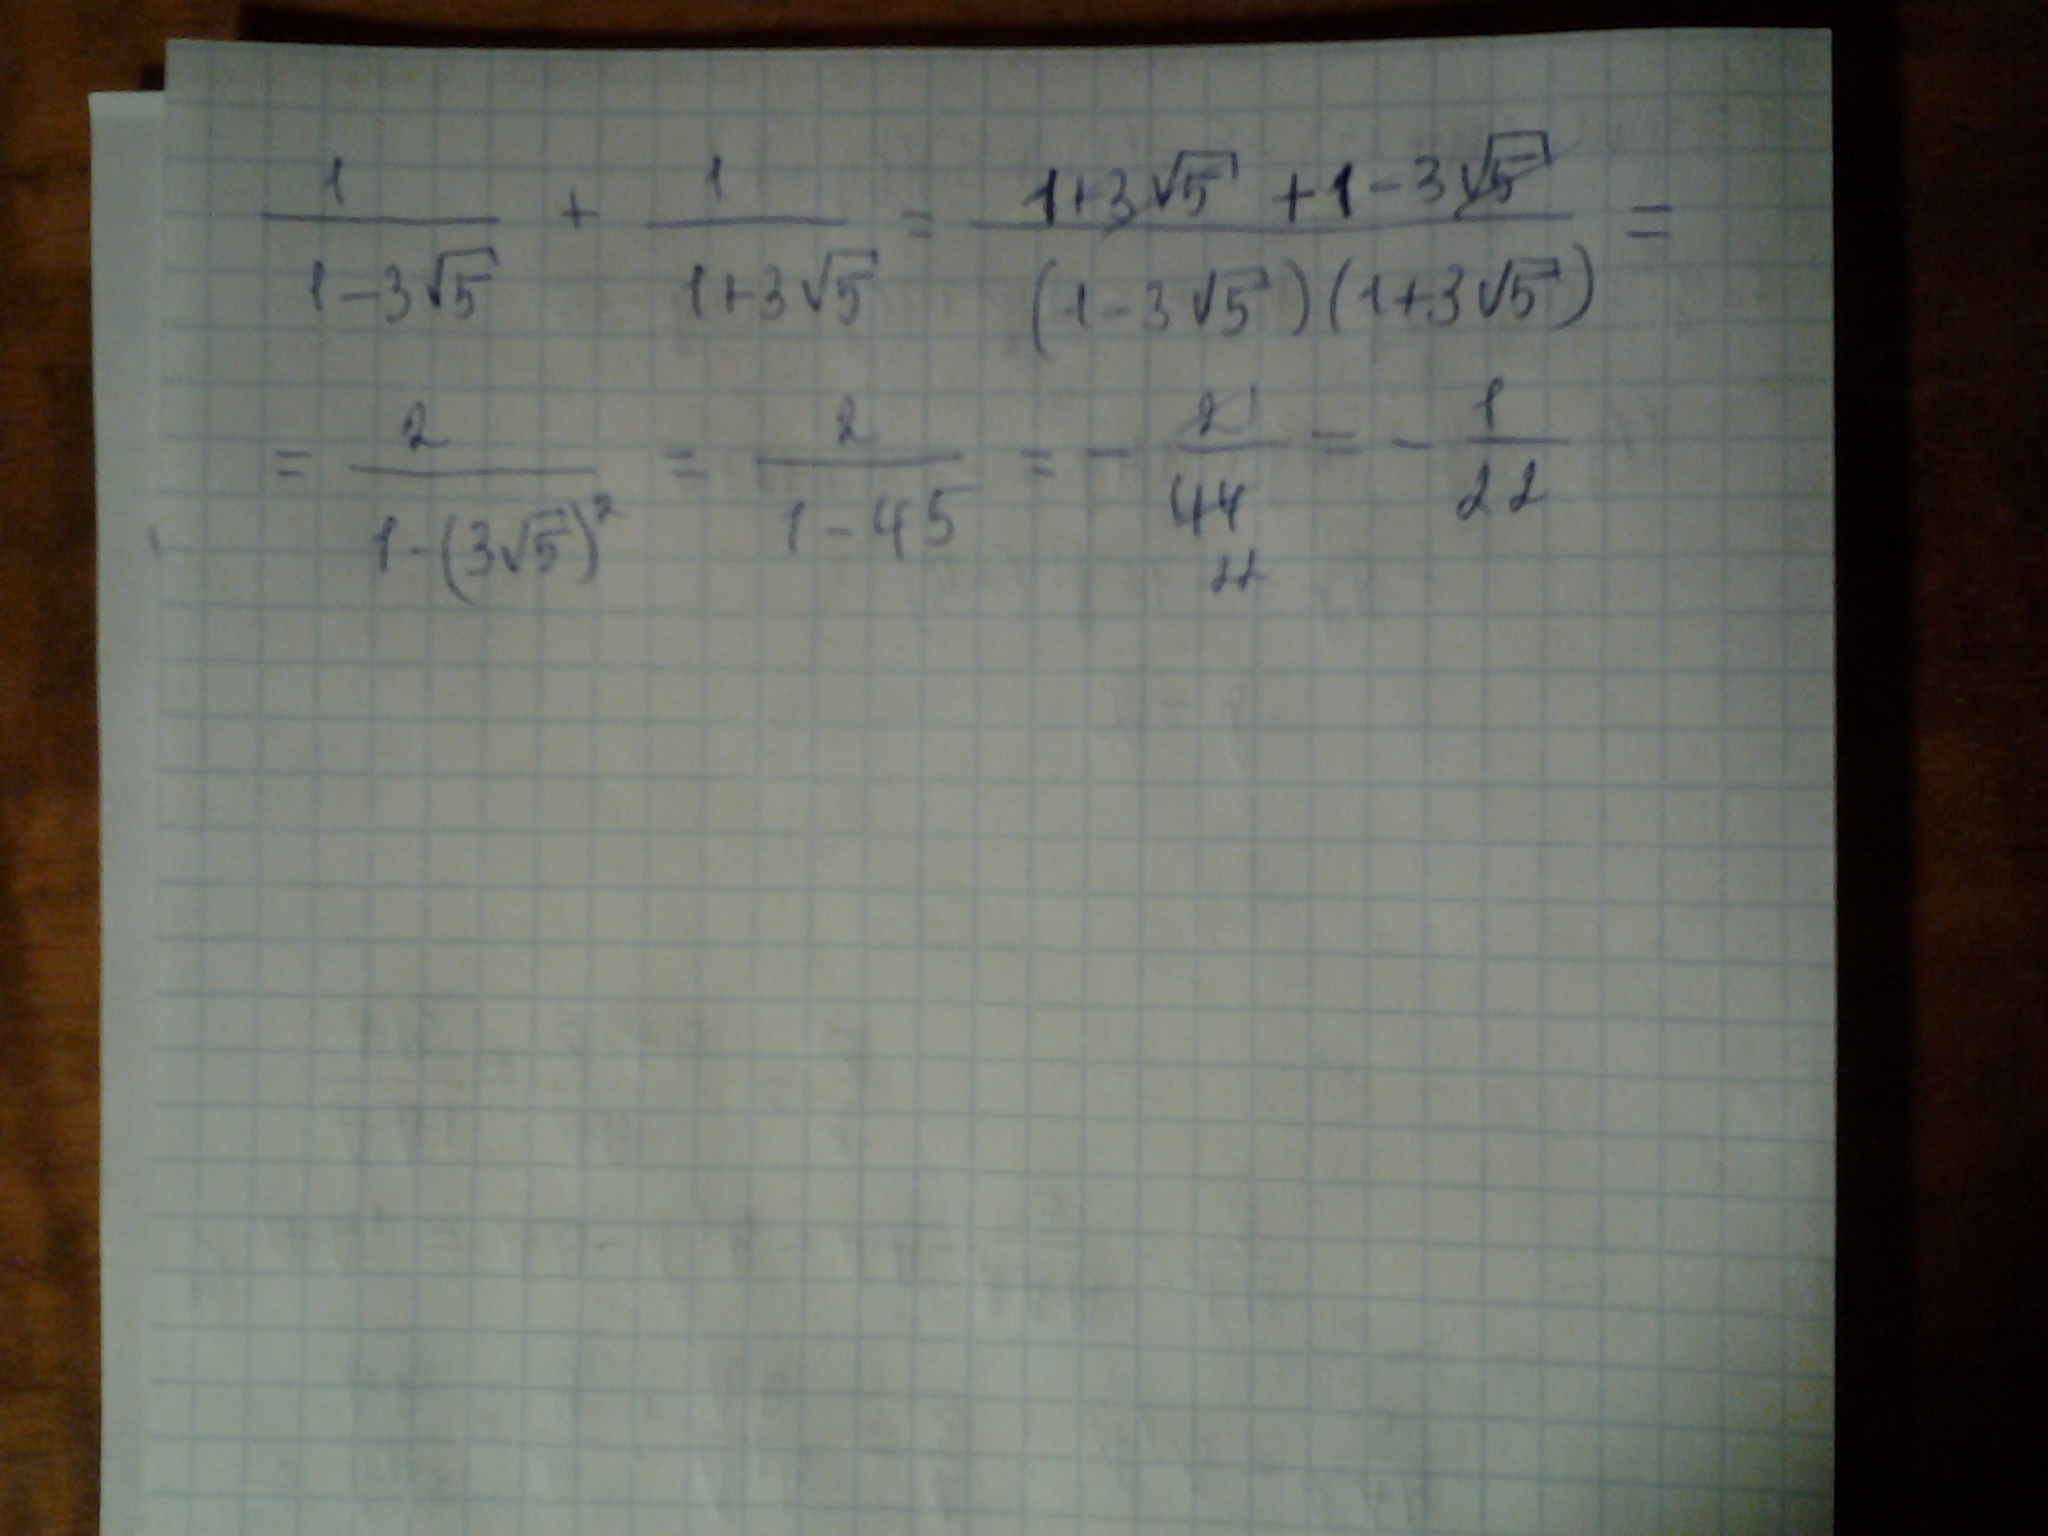 1/(1-3√5) + 1/(1+3√5) = (1+3√5 +1-3√5)/((1-3√5)(1+3√5)) =
= 2/(1-(3√5)²) = 2/(1-45) = - 2/44 = - 1/22
22